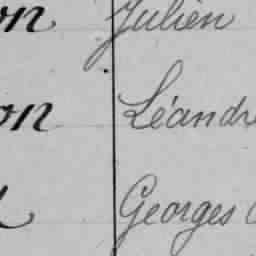 on Julien
on Léandre
Georges